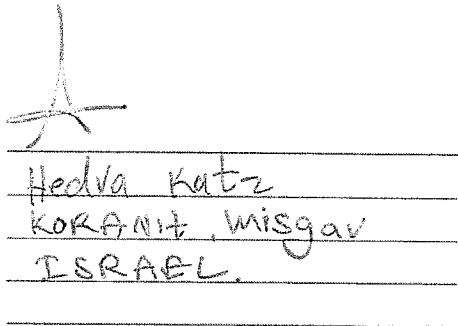 Hedva Katz
KORANit, Misgav
ISRAEL.